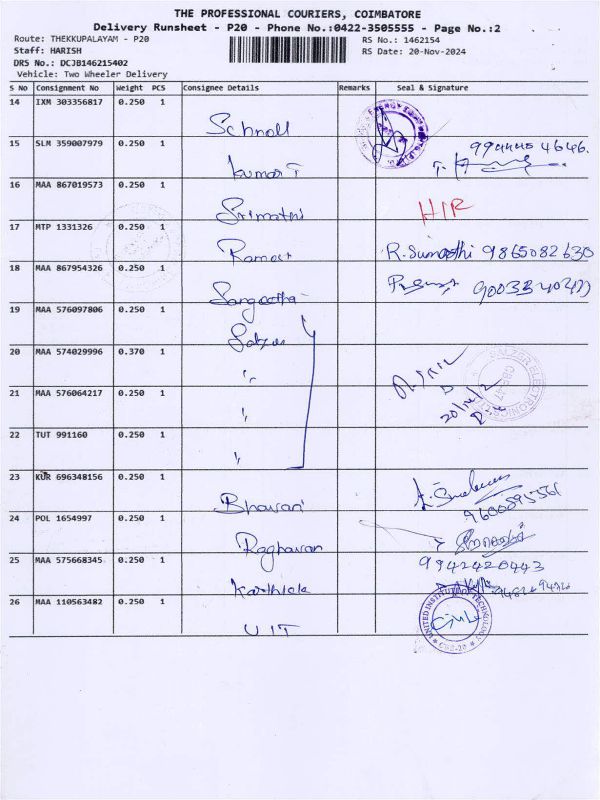 THE PROFESSIONAL COURIERS, COIMBATORE
Delivery Runsheet - P20 - Phone No.:0422-3505555 - Page No.:2
Route: THEKKUPALAYAM - P20
RS No.: 1462154
Staff: HARISH
RS Date: 20-Nov-2024
DRS No.: DCJB146215402
Vehicle: Two Wheeler Delivery
S No Consignment No Weight PCS Consignee Details Remarks Seal & Signature
14 IXM 303356817 0.250 1
15 SLM 359007979 0.250 1
Kumar T
16 MAA 867019573 0.250 1
Srimathi H/R
17 MTP 1331326 0.250 1
Ramesh R. Sumathi 9865082630
18 MAA 867954326 0.250 1
Sangeetha
19 MAA 576097806 0.250 1
20 MAA 574029996 0.370 1
"
21 MAA 576064217 0.250 1
"
22 TUT 991160 0.250 1
"
23 KUR 696348156 0.250 1
Bhavani
24 POL 1654997 0.250 1
Raghavan
25 MAA 575668345 0.250 1
9942420443
Karthick
26 MAA 110563482 0.250 1
UIT
UNITED INSTITUTE OF TECHNOLOGY
CBE-20